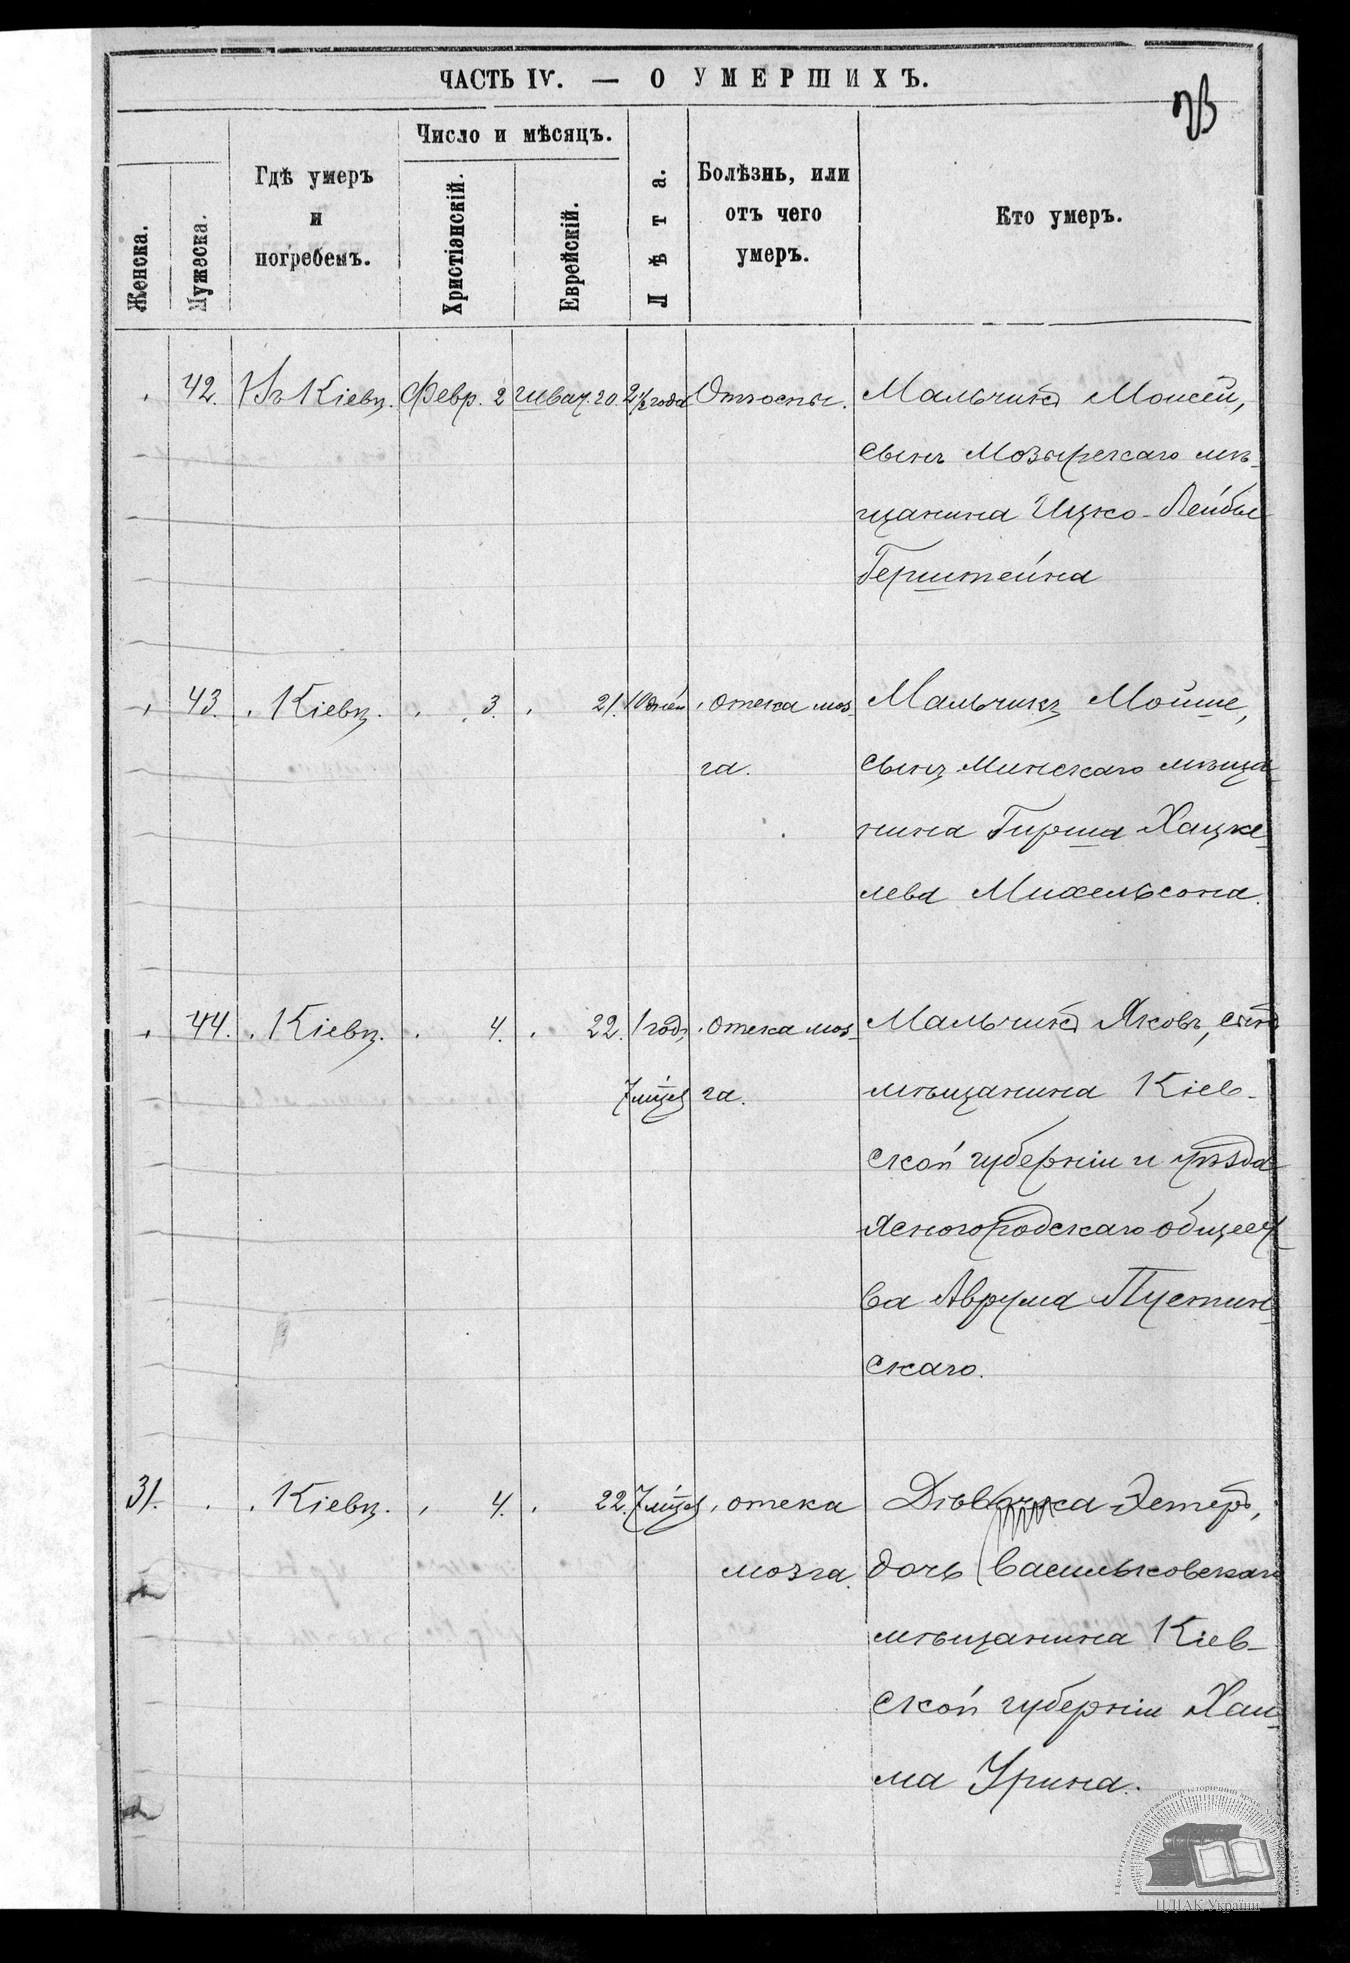 ЧАСТЬ IV. — О УМЕРШИХЪ.
Женска.
Мужеска.
Гдѣ умеръ
и
погребенъ.
Число и мѣсяцъ.
Христіэнскій.
Еврейскій.
Лѣта.
Болѣзнь, или
отъ чего
умеръ.
Кто умеръ.
42. Въ Кіевѣ. Февр. 2 Шват. 20. 2½ года Отъ оспы. Мальчикъ Моисей,
сынъ Мозырскаго мѣ-
щанина Ицко-Лейбы
Герштейна
43. Кіевѣ. 3. 21. 10 дней отека моз- Мальчикъ Мойше,
га. сынъ Минскаго мѣща-
нина Гирша Хацке-
лева Михельсона.
44. Кіевѣ. 4. 22. 1 годъ, отека моз- Мальчикъ Яковъ, сынъ
7 мѣс. га. мѣщанина Кіев-
ской губерніи и уѣзда
Ясногородскаго общест-
ва Аврума Пустин-
скаго.
31. Кіевѣ. 4. 22. 7 мѣс. отека Дѣвочка Эстеръ,
мозга. дочь Васильковскаго
мѣщанина Кіев-
ской губерніи Хаи-
ма Урина.
ЦДІАК України